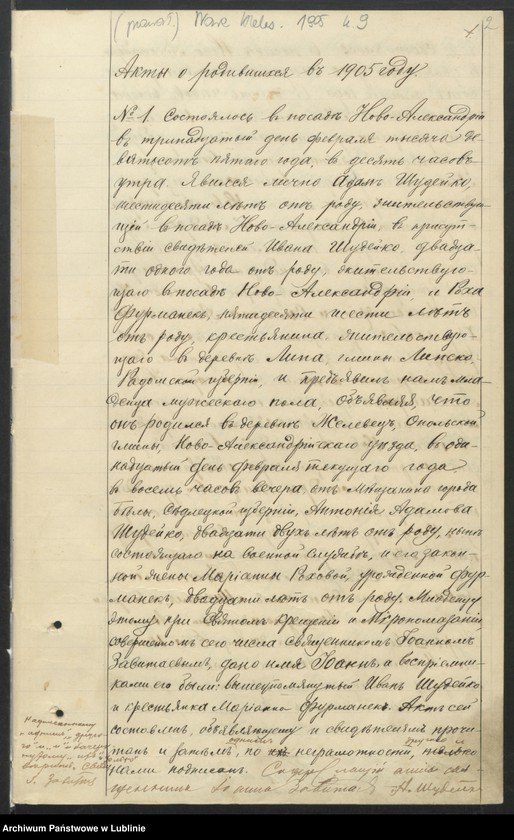 1905
2
Акты о родившихся въ 1905 году.
№ 1. Состоялось в посадѣ Ново-Александріи
въ тринадцатый день февраля тысяча де-
вятьсотъ пятаго года, в десять часовъ
утра. Явился лично Адамъ Шудейко,
шестидесяти лѣтъ отъ роду, жительствую-
щій в посадѣ Ново-Александріи, в присут-
ствіи свидѣтелей Ивана Шудейко, двадца-
ти одного года отъ роду, жительствую-
щаго в посадѣ Ново-Александріи, и Роха
Фурманекъ, пятидесяти шести лѣтъ
отъ роду, крестьянина, жительствую-
щаго в деревнѣ Липа гмины Липско,
Радомской губерніи, и предъявилъ намъ мла-
денца мужескаго пола, объявляя, что
онъ родился в деревнѣ Желевецъ, Опольской
гмины, Ново-Александрійскаго уѣзда, въ оди-
надцатый день февраля текущаго года
в восемь часовъ вечера, отъ мѣщанина города
Бѣлы, Сѣдлецкой губерніи, Антонія Адамова
Шудейко, двадцати двухъ лѣтъ отъ роду, нынѣ
состоящаго на военной службѣ, и его закон-
ной жены Маріанны Роховой, урожденной Фур-
манекъ, двадцати лѣтъ отъ роду. Младенцу
этому при Святомъ крещеніи и Мѵропомазаніи,
совершенномъ сего числа священникомъ Іоанномъ
Завитаевымъ, дано имя Іоаннъ, а воспріемни-
ками его были: вышеупомянутый Иванъ Шудейко
и крестьянка Маріанна Фурманекъ. Актъ сей
составленъ, объявляющему и свидѣтелямъ прочи-
танъ и затѣмъ, по неграмотности,
нами подписанъ.
А. Шудейко
Archiwum Państwowe w Lublinie